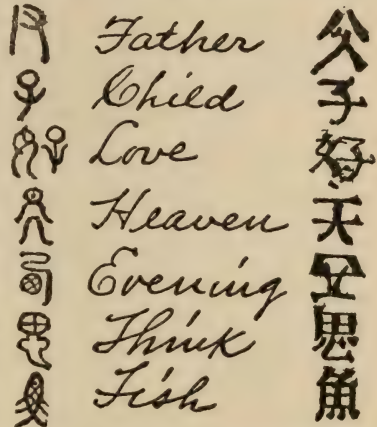 Father 父
Child 子
Love 好
Heaven 天
Evening
Think 思
Fish 魚